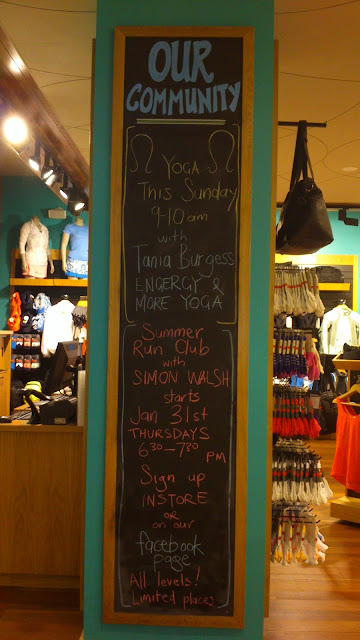 OUR
COMMUNITY
YOGA
This Sunday
9-10am
with
Tania Burgess
ENGERGY &
MORE YOGA
Summer
Run Club
with
SIMON WALSH
starts
Jan 31st
THURSDAYS
6:30-7:30 PM
Sign up
INSTORE
OR
on our
facebook
page
All levels!
Limited places